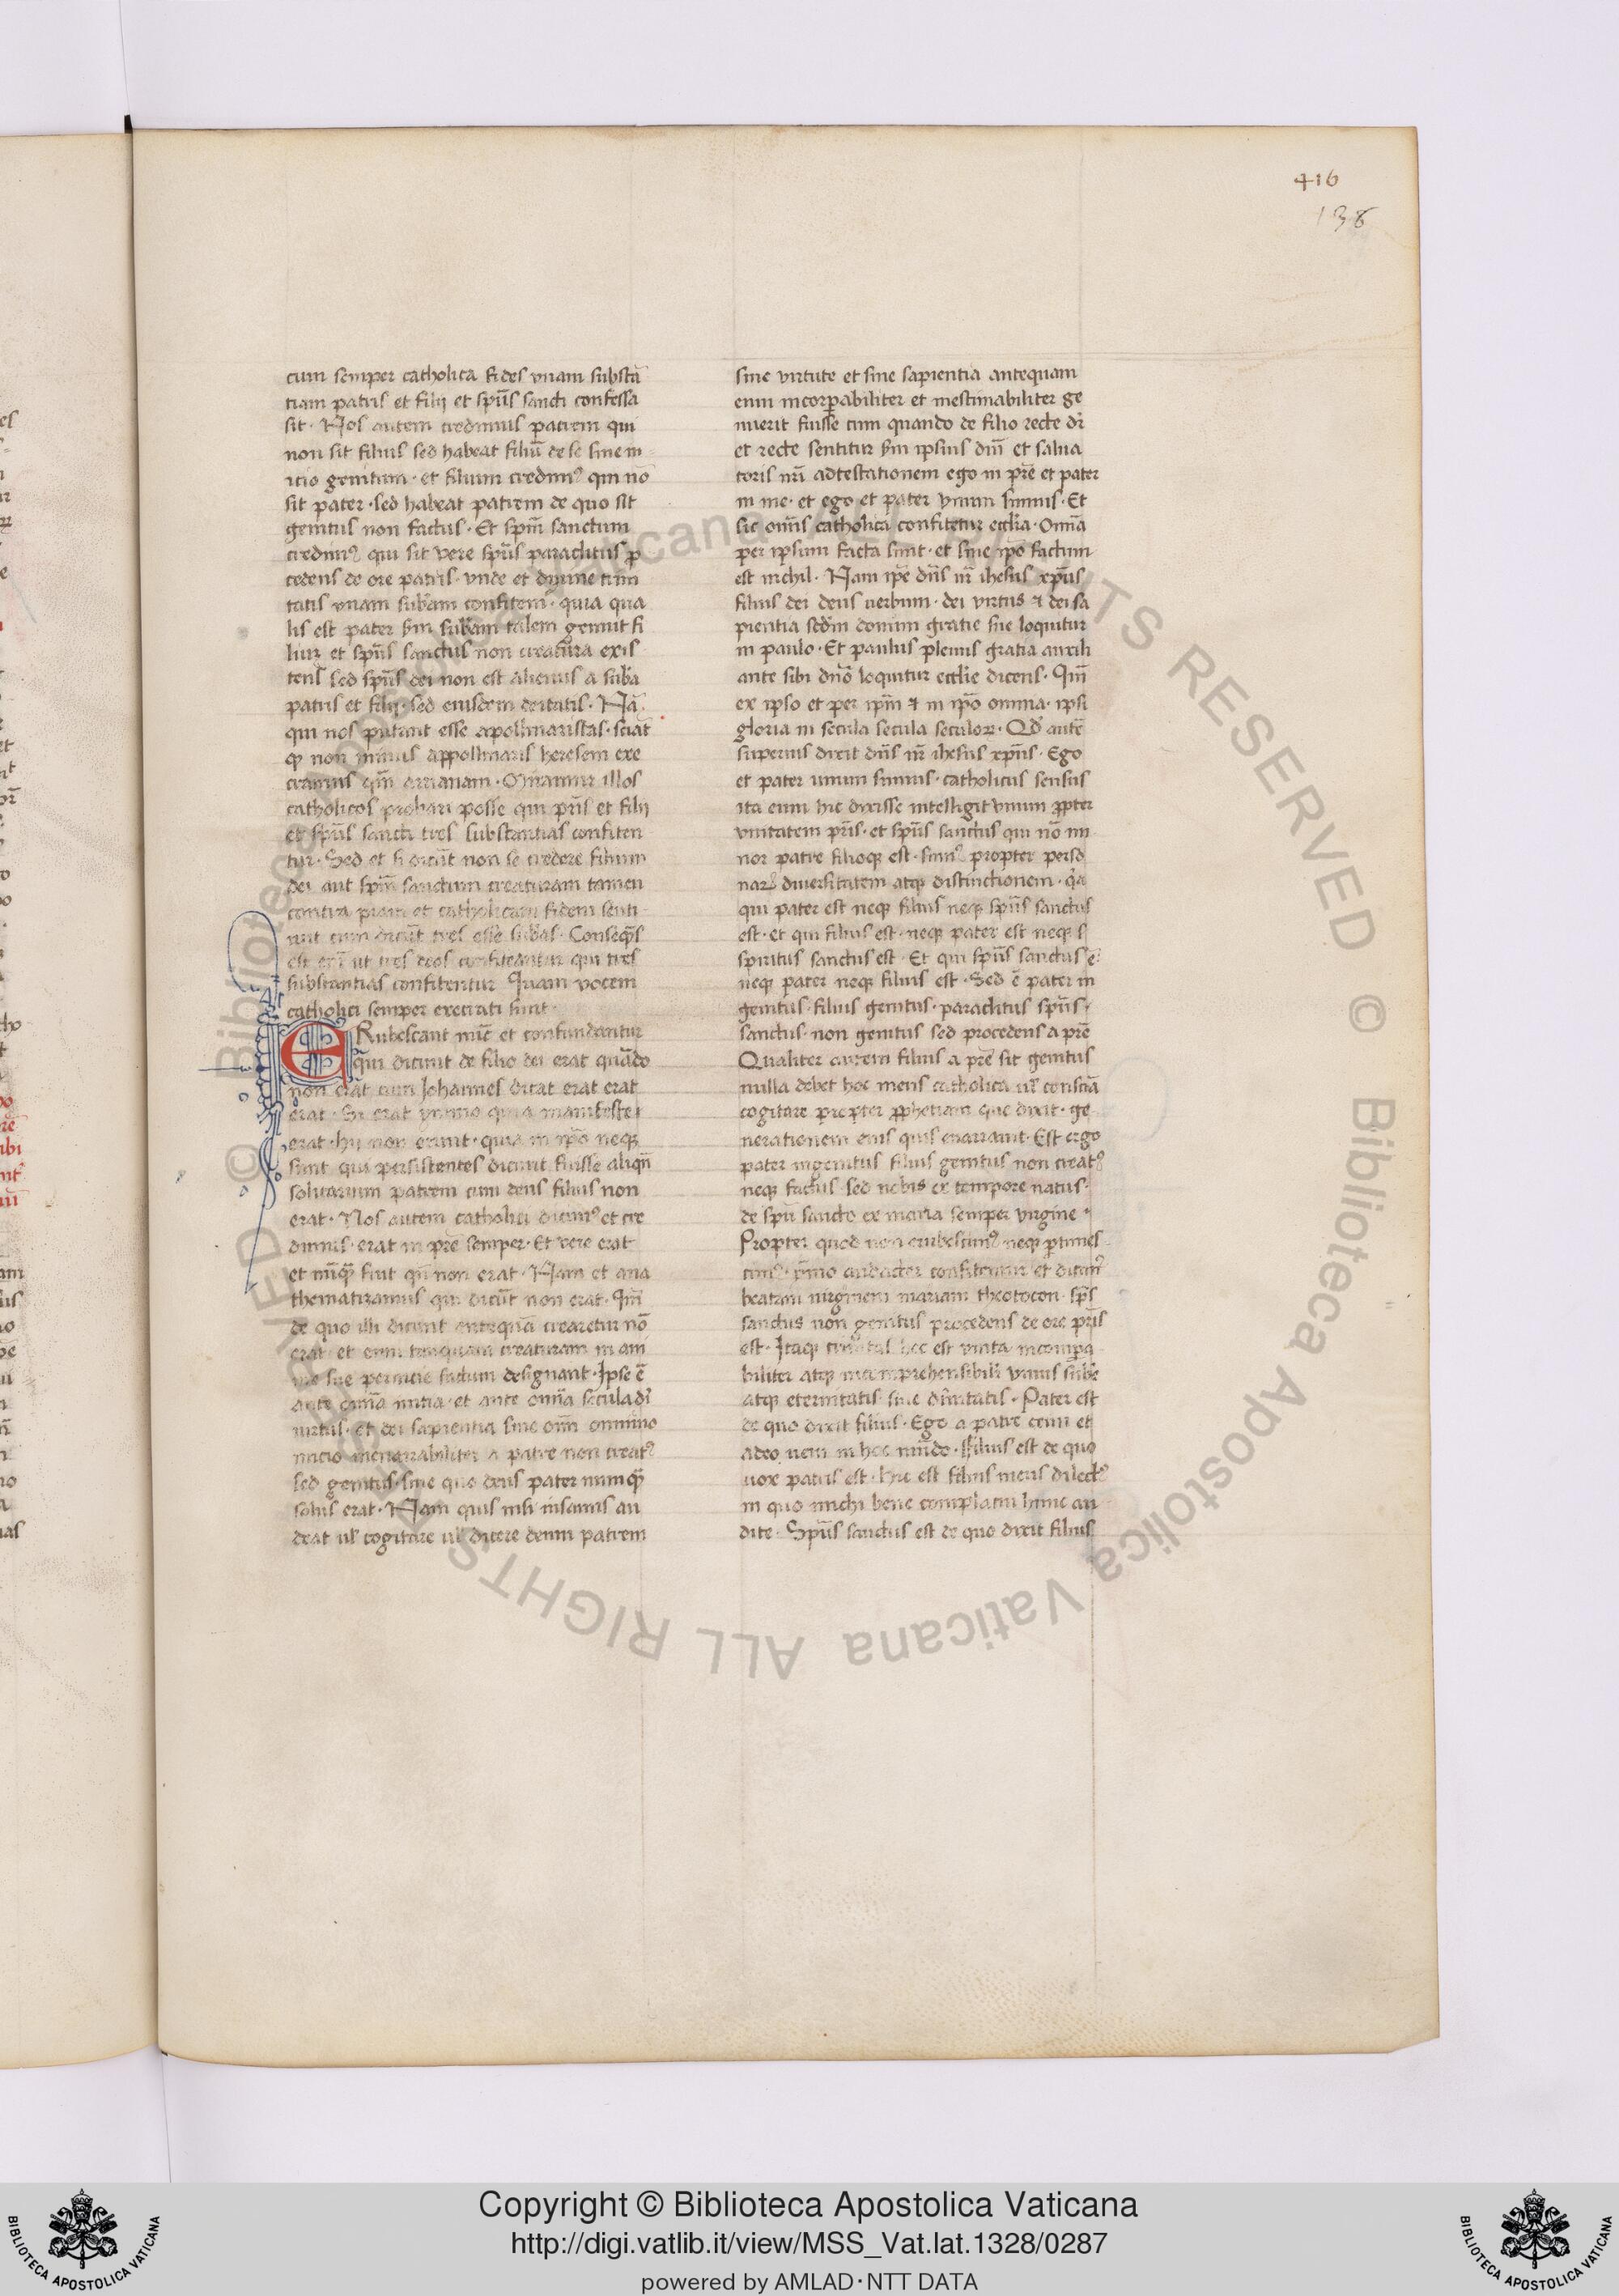 416
138
cum semper catholica fides vnam substā
tiam patris et filij et spūs sancti confessa
sit · Nos autem credimus patrem qui
non sit filius sed habeat filiū de se sine in
icio genitum · et filium credimꝰ qui nō
sit pater · sed habeat patrem de quo sit
genitus non factus · Et spm̄ sanctum
credimꝰ qui sit vere spūs paraclitus ꝓ
cedens de ore patris · vnde et diuine trini
tatis vnam subām confitem · quia qua
lis est pater sm̄ subām talem genuit fi
lium et spūs sanctus non creatura exis
tens sed spūs dei non est alienus a subā
patris et filij · sed eiusdem deitatis · Nā
qui nos putant esse apollinaristas · sciāt
ꝙ non minus appollinaris heresem exe
cramus qm̄ arrianam · Miramur illos
catholicos probari posse qui pris et filij
et spūs sancti tres substantias confiten
tur · Sed et si dicūt non se credere filium
dei aut spm̄ sanctum creaturam tamen
contra piam et catholicam fidem senti
unt cum dicūt tres esse subās · Conseqn̄s
est eni ut tres deos confiteantur qui tres
substantias confitentur Quam vocem
catholici semper execrati sunt
ERubescant nūc et confundantur
qui dicunt de filio dei erat quādo
non erat cum Johannes dicat erat erat
erat · Si erat ymmo quia manifeste
erat · hij non erunt · quia in ipō neqꝫ
sunt qui persistentes dicunt fuisse aliqn̄
solitarium patrem cum deus filius non
erat · Nos autem catholici dicimꝰ et cre
dimus · erat in pre semper · Et vere erat
et nūqꝫ fuit qn̄ non erat · Nam et ana
thematizamus qui dicūt non erat · Qm̄
de quo illi dicunt antequā crearetur nō
erat et eum tanquam creaturam in ani
me sue pernicie factum designant · Ipse ē
ante omīa initia · et ante omīa secula dī
uirtus · et dei sapientia sine omī omnino
inicio inenarrabiliter a patre non creatꝰ
sed genitus · sine quo deus pater numqꝫ
solus erat · Nam quis nisi insanus au
deat ul cogitare ul dicere deum patrem
sine virtute et sine sapientia antequam
eum incorpabiliter et inestimabiliter ge
nuerit fuisse cum quando de filio recte dr̄
et recte sentitur sm̄ ipsius dnī et salua
toris nrī adtestationem ego in pre et pater
in me · et ego et pater vnum sumus · Et
sic omīs catholica confitetur ecclīa · Omīa
per ipsum facta sunt · et sine ipō factum
est nichil · Nam ipē dn̄s nr̄ ihesus xp̄us
filius dei deus uerbum · dei virtus ⁊ dei sa
pientia sedm̄ donum gratie sue loquitur
in paulo · Et paulus plenus gratia auxili
ante sibi dnō loquitur ecclīe dicens · Qm̄
ex ipso et per ipm̄ ⁊ in ipō omnia · ipsi
gloria in secula secula seculoꝝ · Qd̄ autē
superius dixit dn̄s nr̄ ihesus xp̄us · Ego
et pater unum sumus · catholicus sensus
ita eum hic dixisse intelligit vnum ꝓpter
vnitatem pris · et spūs sanctus qui nō mi
nor patre filioqꝫ est · sumꝰ propter perso
narꝫ diuersitatem atqꝫ distinctionem · qa
qui pater est neqꝫ filius neqꝫ spūs sanctus
est · et qui filius est · neqꝫ pater est neqꝫ s
spiritus sanctus est · Et qui spūs sanctus ē
neqꝫ pater neqꝫ filius est · Sed ē pater in
genitus · filius genitus · paraclitus spūs
sanctus · non genitus sed procedens a pre
Qualiter autem filius a pre sit genitus
nulla debet hoc mens catholica ul consciā
cogitare propter ꝓphetiam que dixit · ge
nerationem eius quis enarrauit · Est ergo
pater ingenitus filius genitus non creatꝰ
neqꝫ factus sed nobis ex tempore natus ·
de spū sancto ex maria semper virgine ·
Propter quod non erubescimꝰ neqꝫ ptimes
cimꝰ · ymo audacter confitemur et dicimꝰ
beatam uirginem mariam theotocon · spūs
sanctus non genitus procedens de ore pris
est · Itaqꝫ trinitas hec est vnita incompa
biliter atqꝫ incomprehensibilr vnius sube
atqꝫ eternitatis siue diuinitatis · Pater est
de quo dixit filius · Ego a patre exiui et
adeo ueni in hoc mūdo · filius est de quo
uox patris est · hic est filius meus dilectꝰ
in quo michi bene complacui hunc au
dite · Spūs sanctus est de quo dixit filius
Copyright © Biblioteca Apostolica Vaticana
http://digi.vatlib.it/view/MSS_Vat.lat.1328/0287
powered by AMLAD·NTT DATA